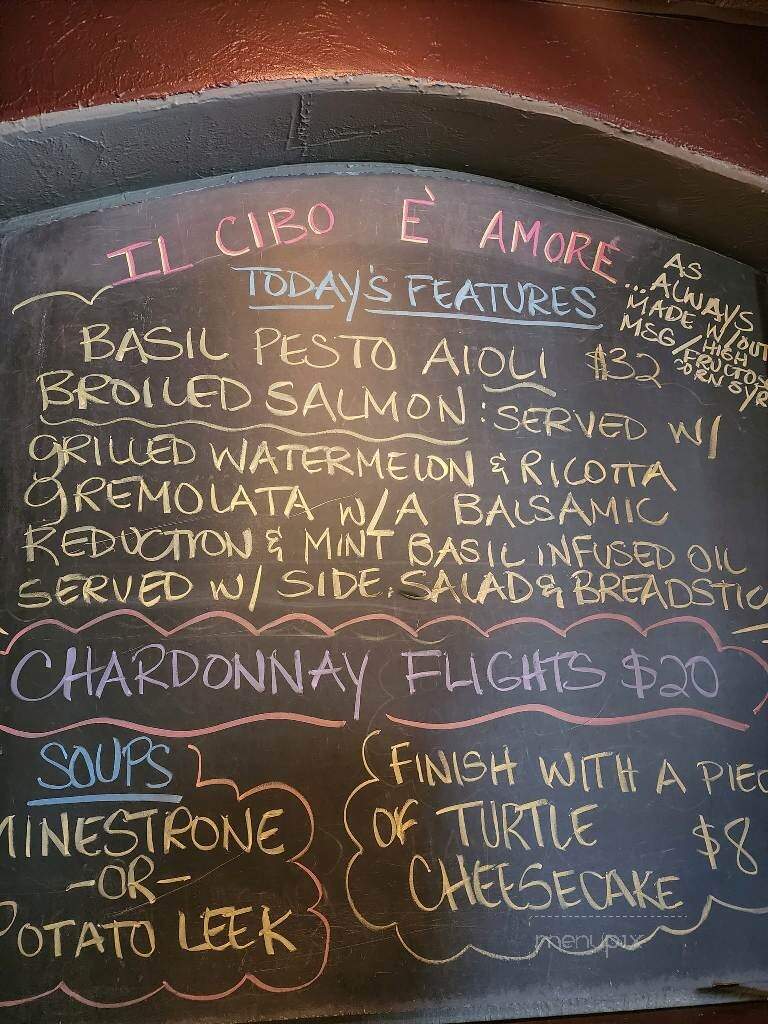 IL CIBO È AMORE
AS
...ALWAYS
MADE W/OUT
MSG/HIGH
FRUCTOS
CORN SYR
TODAY'S FEATURES
BASIL PESTO AIOLI $32
BROILED SALMON: SERVED W/
GRILLED WATERMELON & RICOTTA
GREMOLATA W/A BALSAMIC
REDUCTION & MINT BASIL INFUSED OIL
SERVED W/ SIDE SALAD & BREADSTIC
CHARDONNAY FLIGHTS $20
SOUPS
MINESTRONE
-OR-
POTATO LEEK
FINISH WITH A PIEC
OF TURTLE $8
CHEESECAKE
menupix